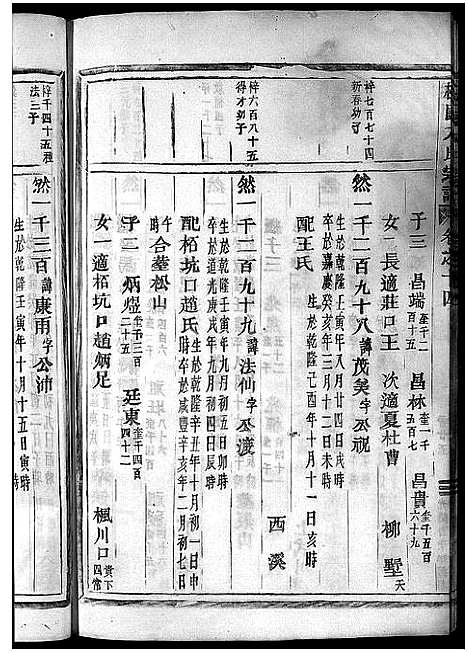 子三 昌端奎千二百十五 昌林奎一千五百七 昌貴奎千五百六十九
女一長適莊口王 次適夏杜曹 柳墅天
梓七百七十四新春幼子
然一千二百九十八諱茂芙字公祝
生於乾隆壬寅年八月廿四日戌時
卒於嘉慶癸亥年三月十二日未時
配王氏 生於乾隆己酉年十月十一日亥時
西溪
梓六百八十五得才幼子
然一千二百九十九諱法仙字公渡
生於乾隆壬寅年九月初五日卯時
卒於道光庚戌年九月初四日辰時
配栢坑口趙氏 生於乾隆辛丑年十月初一日申時卒於咸豐辛亥年二月初七日午時
合墓松山
子二 炳煜奎千三百二十五 廷東奎千四百四十二
女一適栢坑口趙炳足 楓川口貴下四常
梓千四十五法三子
然一千三百諱康雨字公沛
生於乾隆壬寅年十月十五日寅時